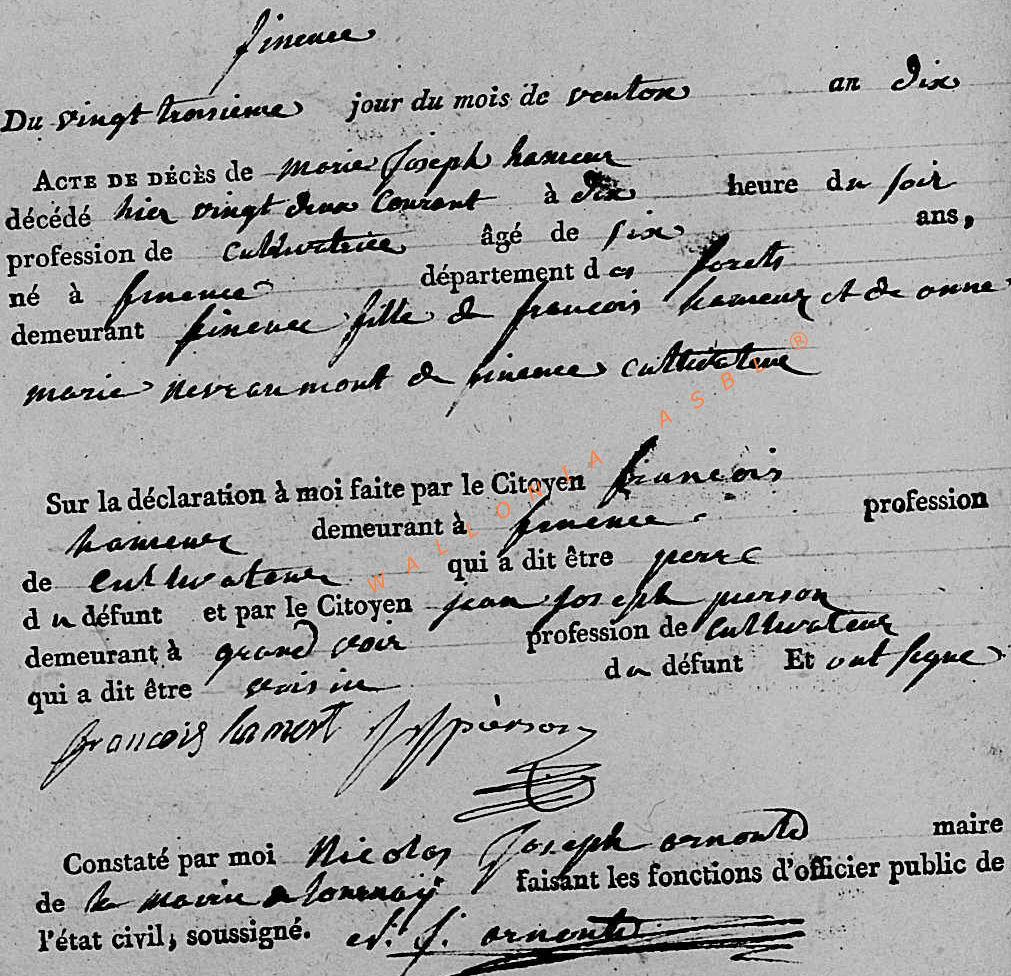 finence
Du vingt troisieme jour du mois de ventose an dix
ACTE DE DÉCÈS de marie Joseph hameur
décédé hier vingt deux Courant à dix heure du soir
profession de cultivatrice âgé de six ans,
né à finence département des forets
demeurant finence fille de francois hameur et de anne
marie neveaumont de finence cultivateur
Sur la déclaration à moi faite par le Citoyen francois
hameur demeurant à finence profession
de cultivateur qui a dit être perre
du défunt et par le Citoyen jean joseph pierson
demeurant à grand voir profession de cultivateur
qui a dit être voisin du défunt Et ont signe
francois hamert JJ pierson
Constaté par moi Nicolas Joseph ornonte maire
de la mairie de tournay faisant les fonctions d'officier public de
l'état civil, soussigné. N. J. ornonte
WALLONIA ASBL ®